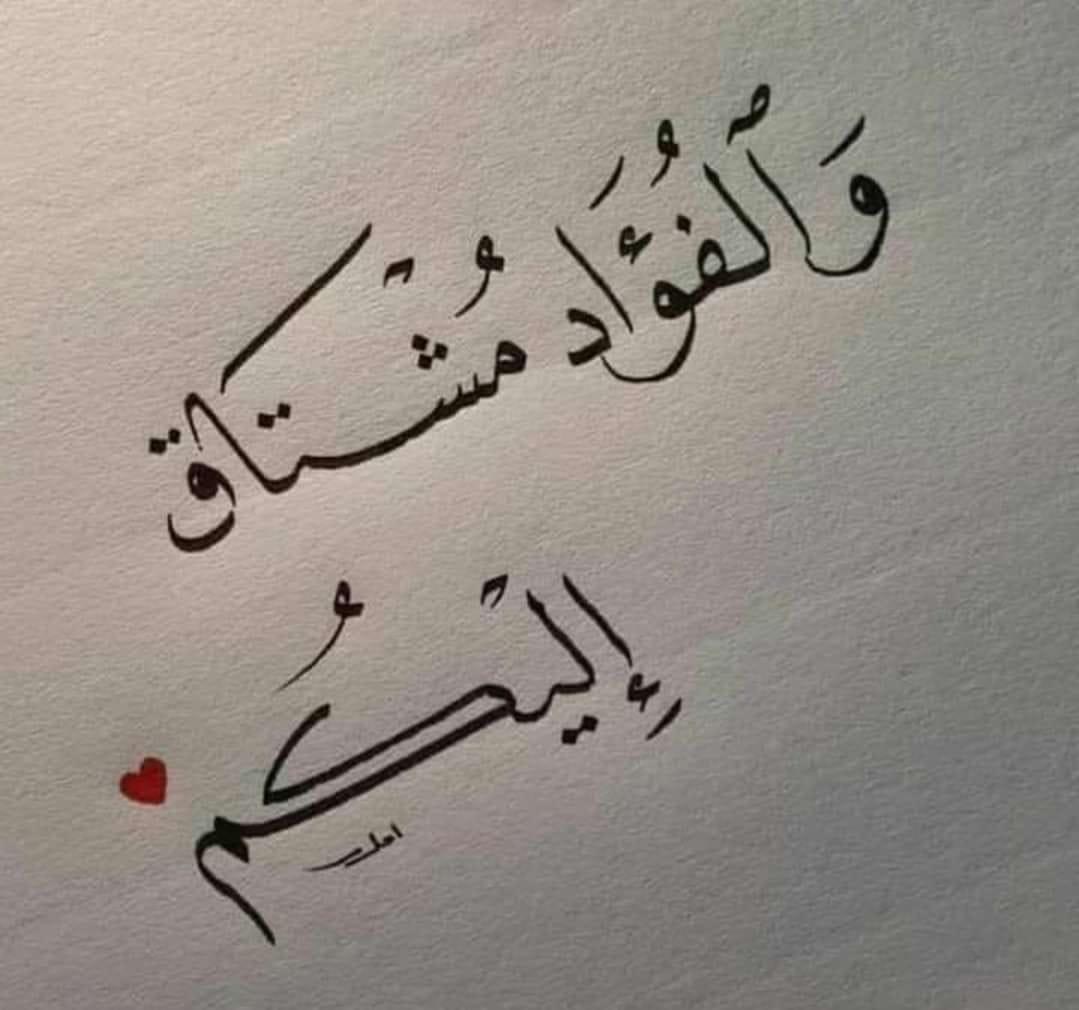 وَٱلفُؤَاد مُشْتاق
إِليْكُم
امل